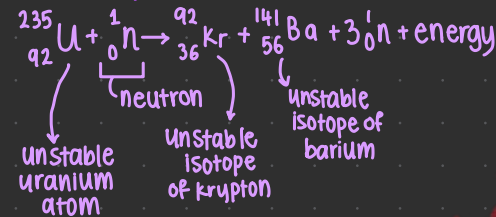 ²³⁵₉₂U + ¹₀n → ⁹²₃₆Kr + ¹⁴¹₅₆Ba + 3¹₀n + energy
neutron
unstable
uranium
atom
unstable
isotope
of krypton
unstable
isotope of
barium